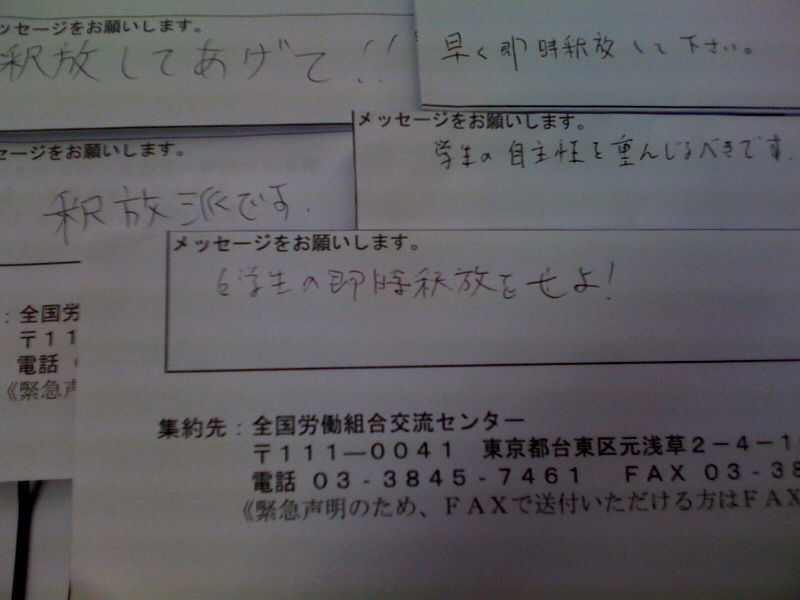 ッセージをお願いします。
釈放してあげて!!
早く即時釈放して下さい。
メッセージをお願いします。
学生の自主性を重んじるべきです。
セージをお願いします。
釈放派です.
メッセージをお願いします。
6学生の即時釈放をせよ!
：全国労
〒11
電話
《緊急声
集約先：全国労働組合交流センター
〒111―0041 東京都台東区元浅草2-4-1
電話 03-3845-7461 FAX 03-38
《緊急声明のため、FAXで送付いただける方はFAX